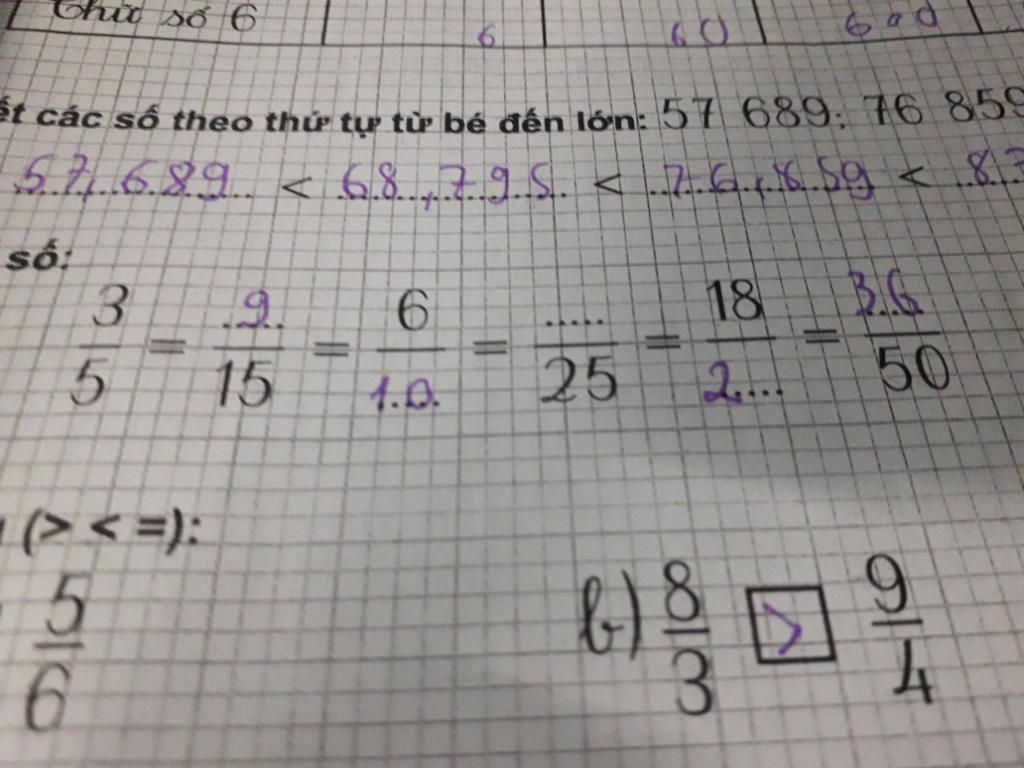 Chữ số 6 6 60 600
ết các số theo thứ tự từ bé đến lớn: 57 689; 76 859
57,689 < 68,795 < 76,859 < 87
số:
3/5 = 9/15 = 6/10 = ...../25 = 18/2.... = 36/50
(> < =):
5/6 b) 8/3 > 9/4